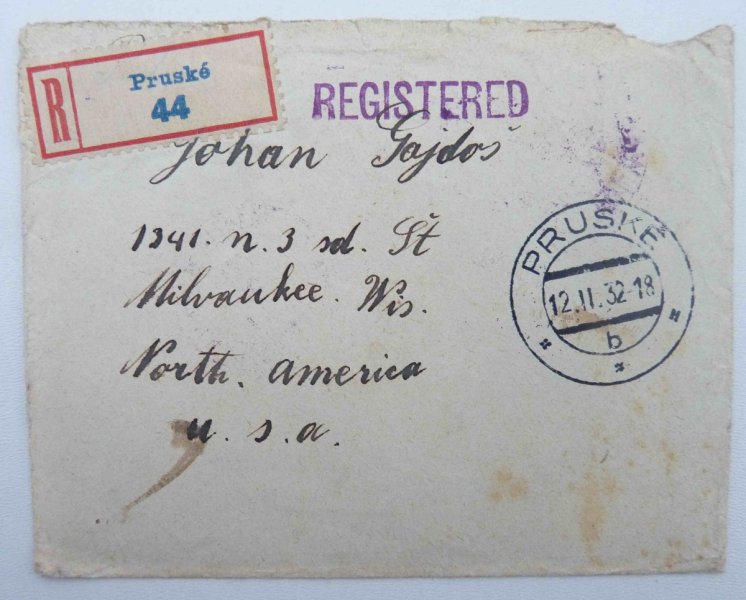 R
Pruské
44
REGISTERED
Johan Gajdoš
1341. n. 3 sd. Št
Milvaukee. Wis.
North. america
u. s. a.
PRUSKÉ
12.II.32-18
b